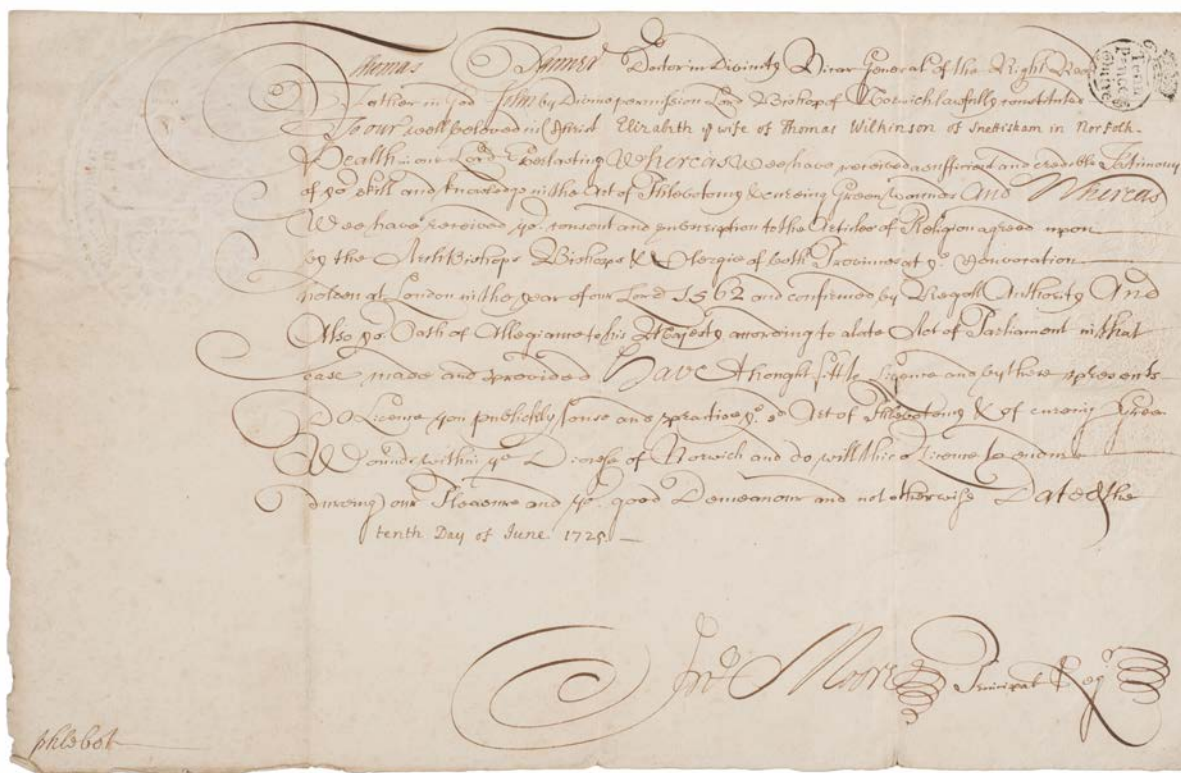 Thomas Tanner Doctor in Divinity Vicar General of the Right Rev
Father in God John by Divine permission Lord Bishop of Norwich lawfully constituted
To our well beloved in Christ Elizabeth ye wife of Thomas Wilkinson of Snettisham in Norfolk
Health in our Lord Everlasting Whereas Wee have received a sufficient and credible Testimony
of yor skill and knowledge in the Art of Phlebotomy & cureing Green Wounds And Whereas
Wee have received yor consent and subscription to the Articles of Religion agreed upon
by the ArchBishops Bishops & Clergie of both Provinces at ye Convocation
holden at London in the year of our Lord 1562 and confirmed by Regall Authority And
Also yor Oath of Allegiance to his Majesty according to a late Act of Parliament in that
case made and provided Have thought fitt to Licence and by there presents
Do License you publickly to use and practice ye sd Art of Phlebotomy & of cureing Green
Wounds within ye Diocess of Norwich and do will this Licence to endure
dureing our Pleasure and yor good Demeanour and not otherwise Dated the
tenth Day of June 1725.
Jno Moore Principal Regr
phlebot